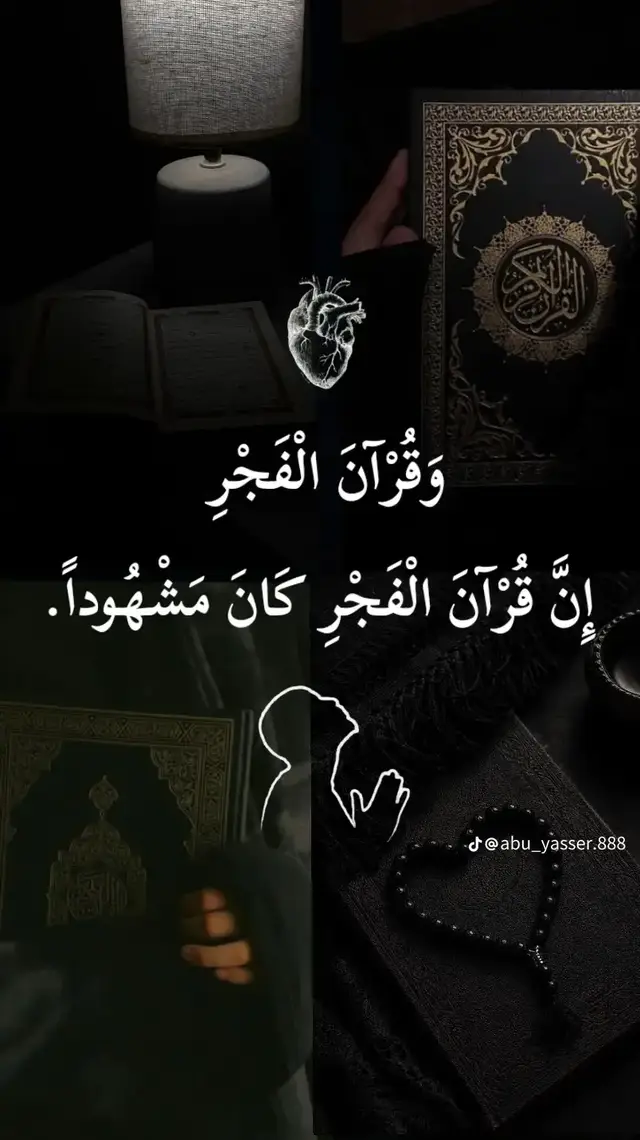 القرآن الكريم
وَقُرْآنَ الْفَجْرِ
إِنَّ قُرْآنَ الْفَجْرِ كَانَ مَشْهُوداً.
@abu_yasser.888